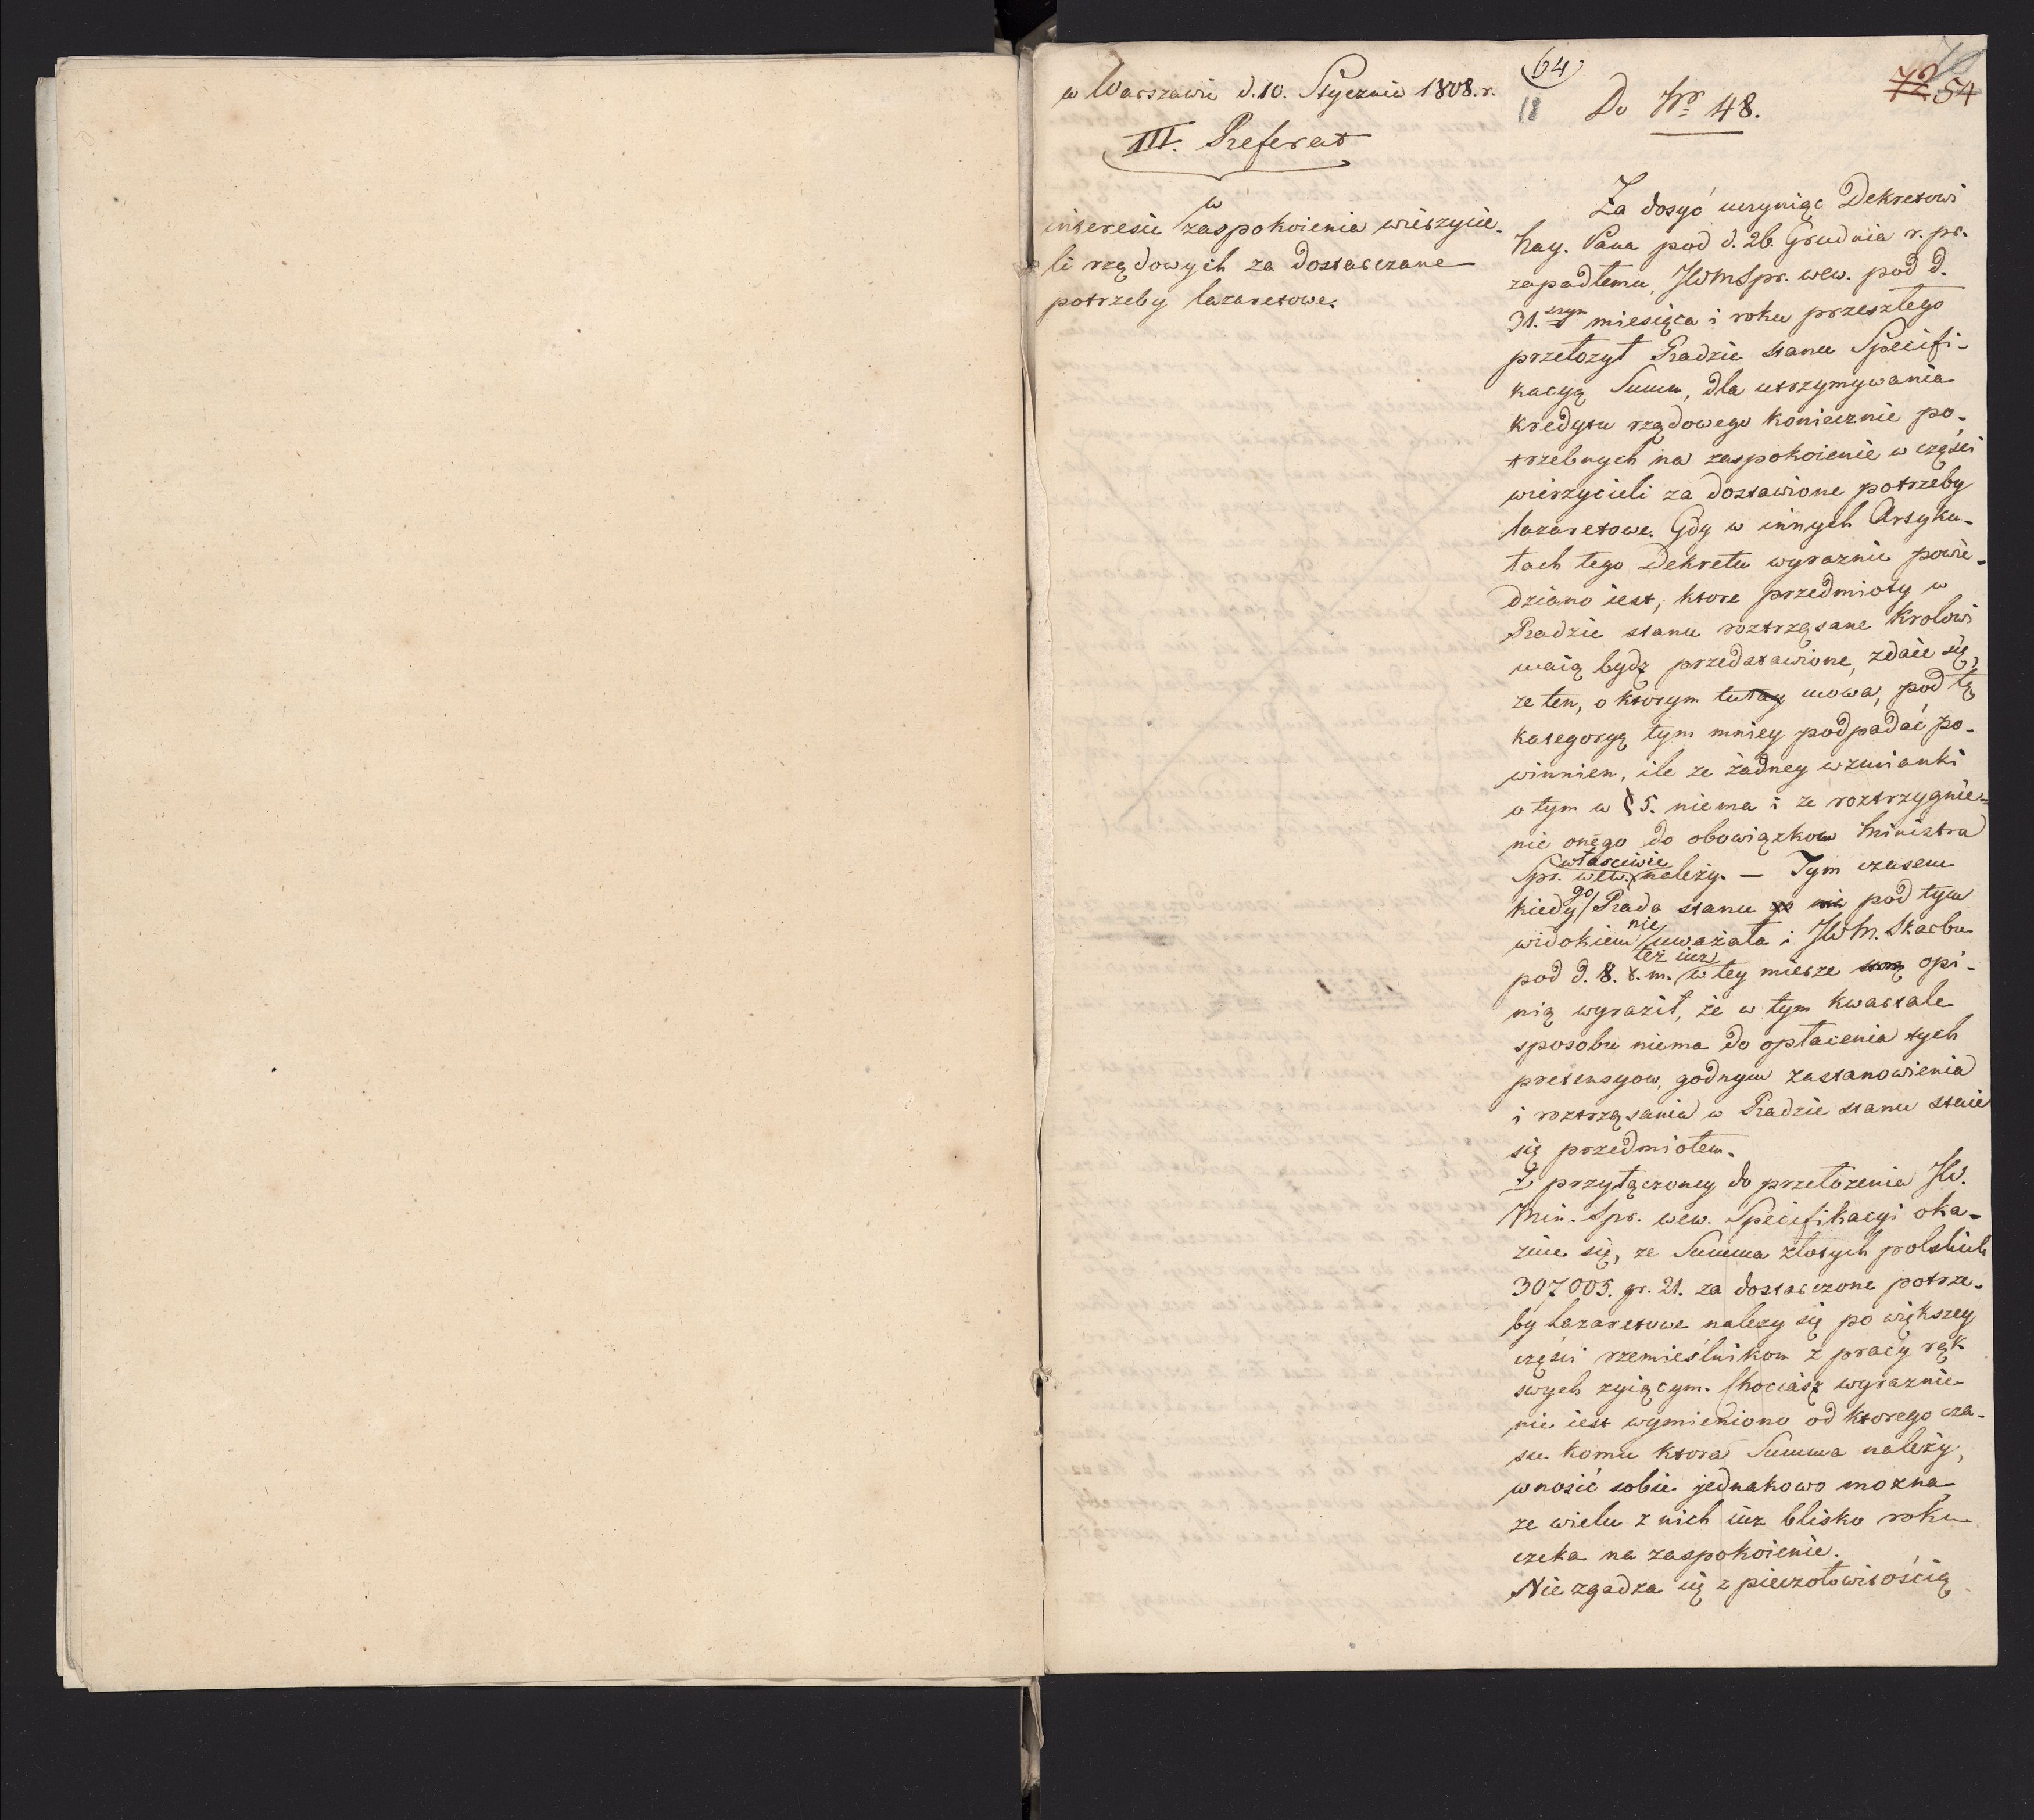 w Warszawie d. 10. Stycznia 1808. r.
III. Referat
w
interesie zaspokoienia wierzycie-
li rządowych za dostarczane
potrzeby lazaretowe.
64
18
Do Nro 48.
72 54
Za dosyć uczyniąc Dekretowi
Nay. Pana pod d. 26. Grudnia r. pr.
zapadłemu, JWMSpr. wew. pod d.
31. szym miesiąca i roku przeszłego
przełozył Radzie stanu Specifi-
kacyą Summ, dla utrzymywania
kredytu rządowego koniecznie po-
trzebnych na zaspokoienie w części
wierzycieli za dostawione potrzeby
lazaretowe. Gdy w innych Artyku-
łach tego Dekretu wyraznie powie-
dziano iest, ktore przedmioty w
Radzie stanu roztrząsane Krolowi
maią bydz przedstawione, zdaie się,
ze ten, o ktorym tutay mowa, pod tę
kategoryą tym mniey podpadać po-
winnien, ile ze żadney wzmianki
o tym w § 5. niema i ze roztrzygnie-
nie onego do obowiązkow Ministra
Spr. wew. własciwie należy. — Tym czasem
kiedy go Rada stanu go nie pod tym
widokiem nie uważała i JWM. Skarbu
pod d. 8. t. m. też iuz w tey mierze swą opi-
nią wyraził, że w tym kwartale
sposobu niema do opłacenia tych
pretensyow, godnym zastanowienia
i roztrząsania w Radzie stanu staie
się przedmiotem.
Z przyłączoney do przełozenia JW.
Min. Spr. wew. Specifikacyi oka-
zuie się, ze Summa złotych polskich
307005. gr. 21. za dostarczone potrze-
by Lazaretowe nalezy się po większey
części rzemieślnikom z pracy rąk
swych zyiącym. Chociasz wyraznie
nie iest wymieniono od ktorego cza-
su komu ktora Summa należy,
wnosić sobie jednakowo mozna
ze wielu z nich iuz blisko roku
czeka na zaspokoienie.
Nie zgadza się z pieczołowitością